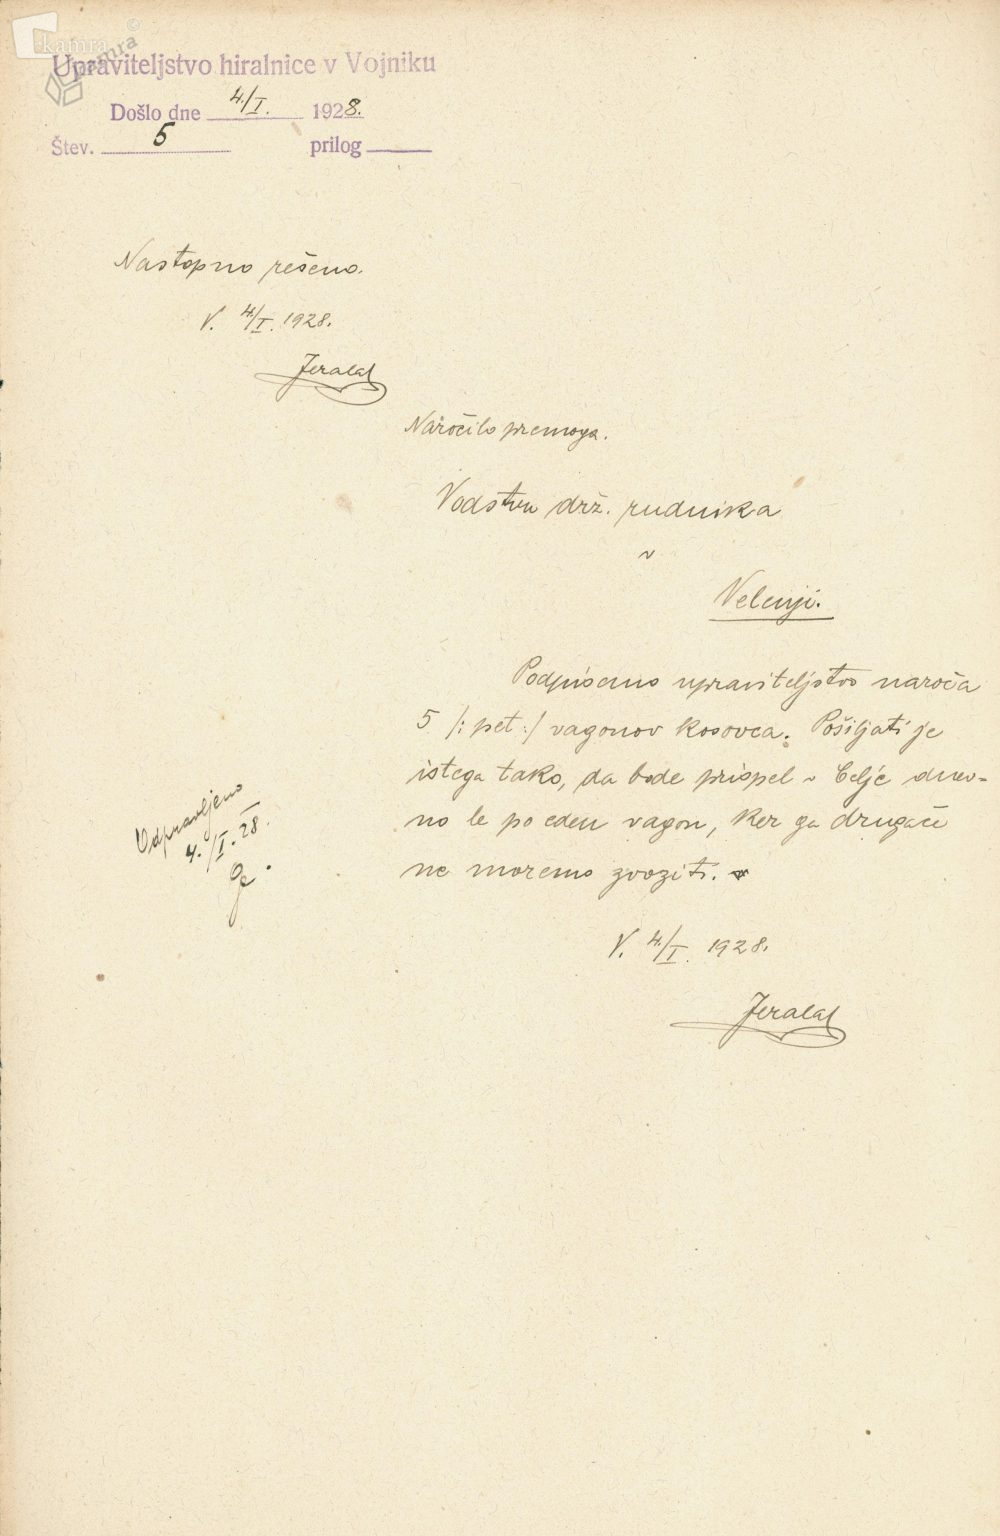 kamra
kamra
Upraviteljstvo hiralnice v Vojniku
Došlo dne 4/I. 1928.
Štev. 5 prilog
Nastopno rešeno.
V. 4/I. 1928.
Naročilo premoga.
Vodstvu drž. rudnika
v
Velenji.
Podpisano upraviteljstvo naroča
5 /: pet :/ vagonov kosovca. Pošiljati je
istega tako, da bode prispel v Celje dnev-
no le po eden vagon, ker ga drugače
ne moremo zvoziti.
Odpravljeno
4./I. 28.
V. 4/I. 1928.